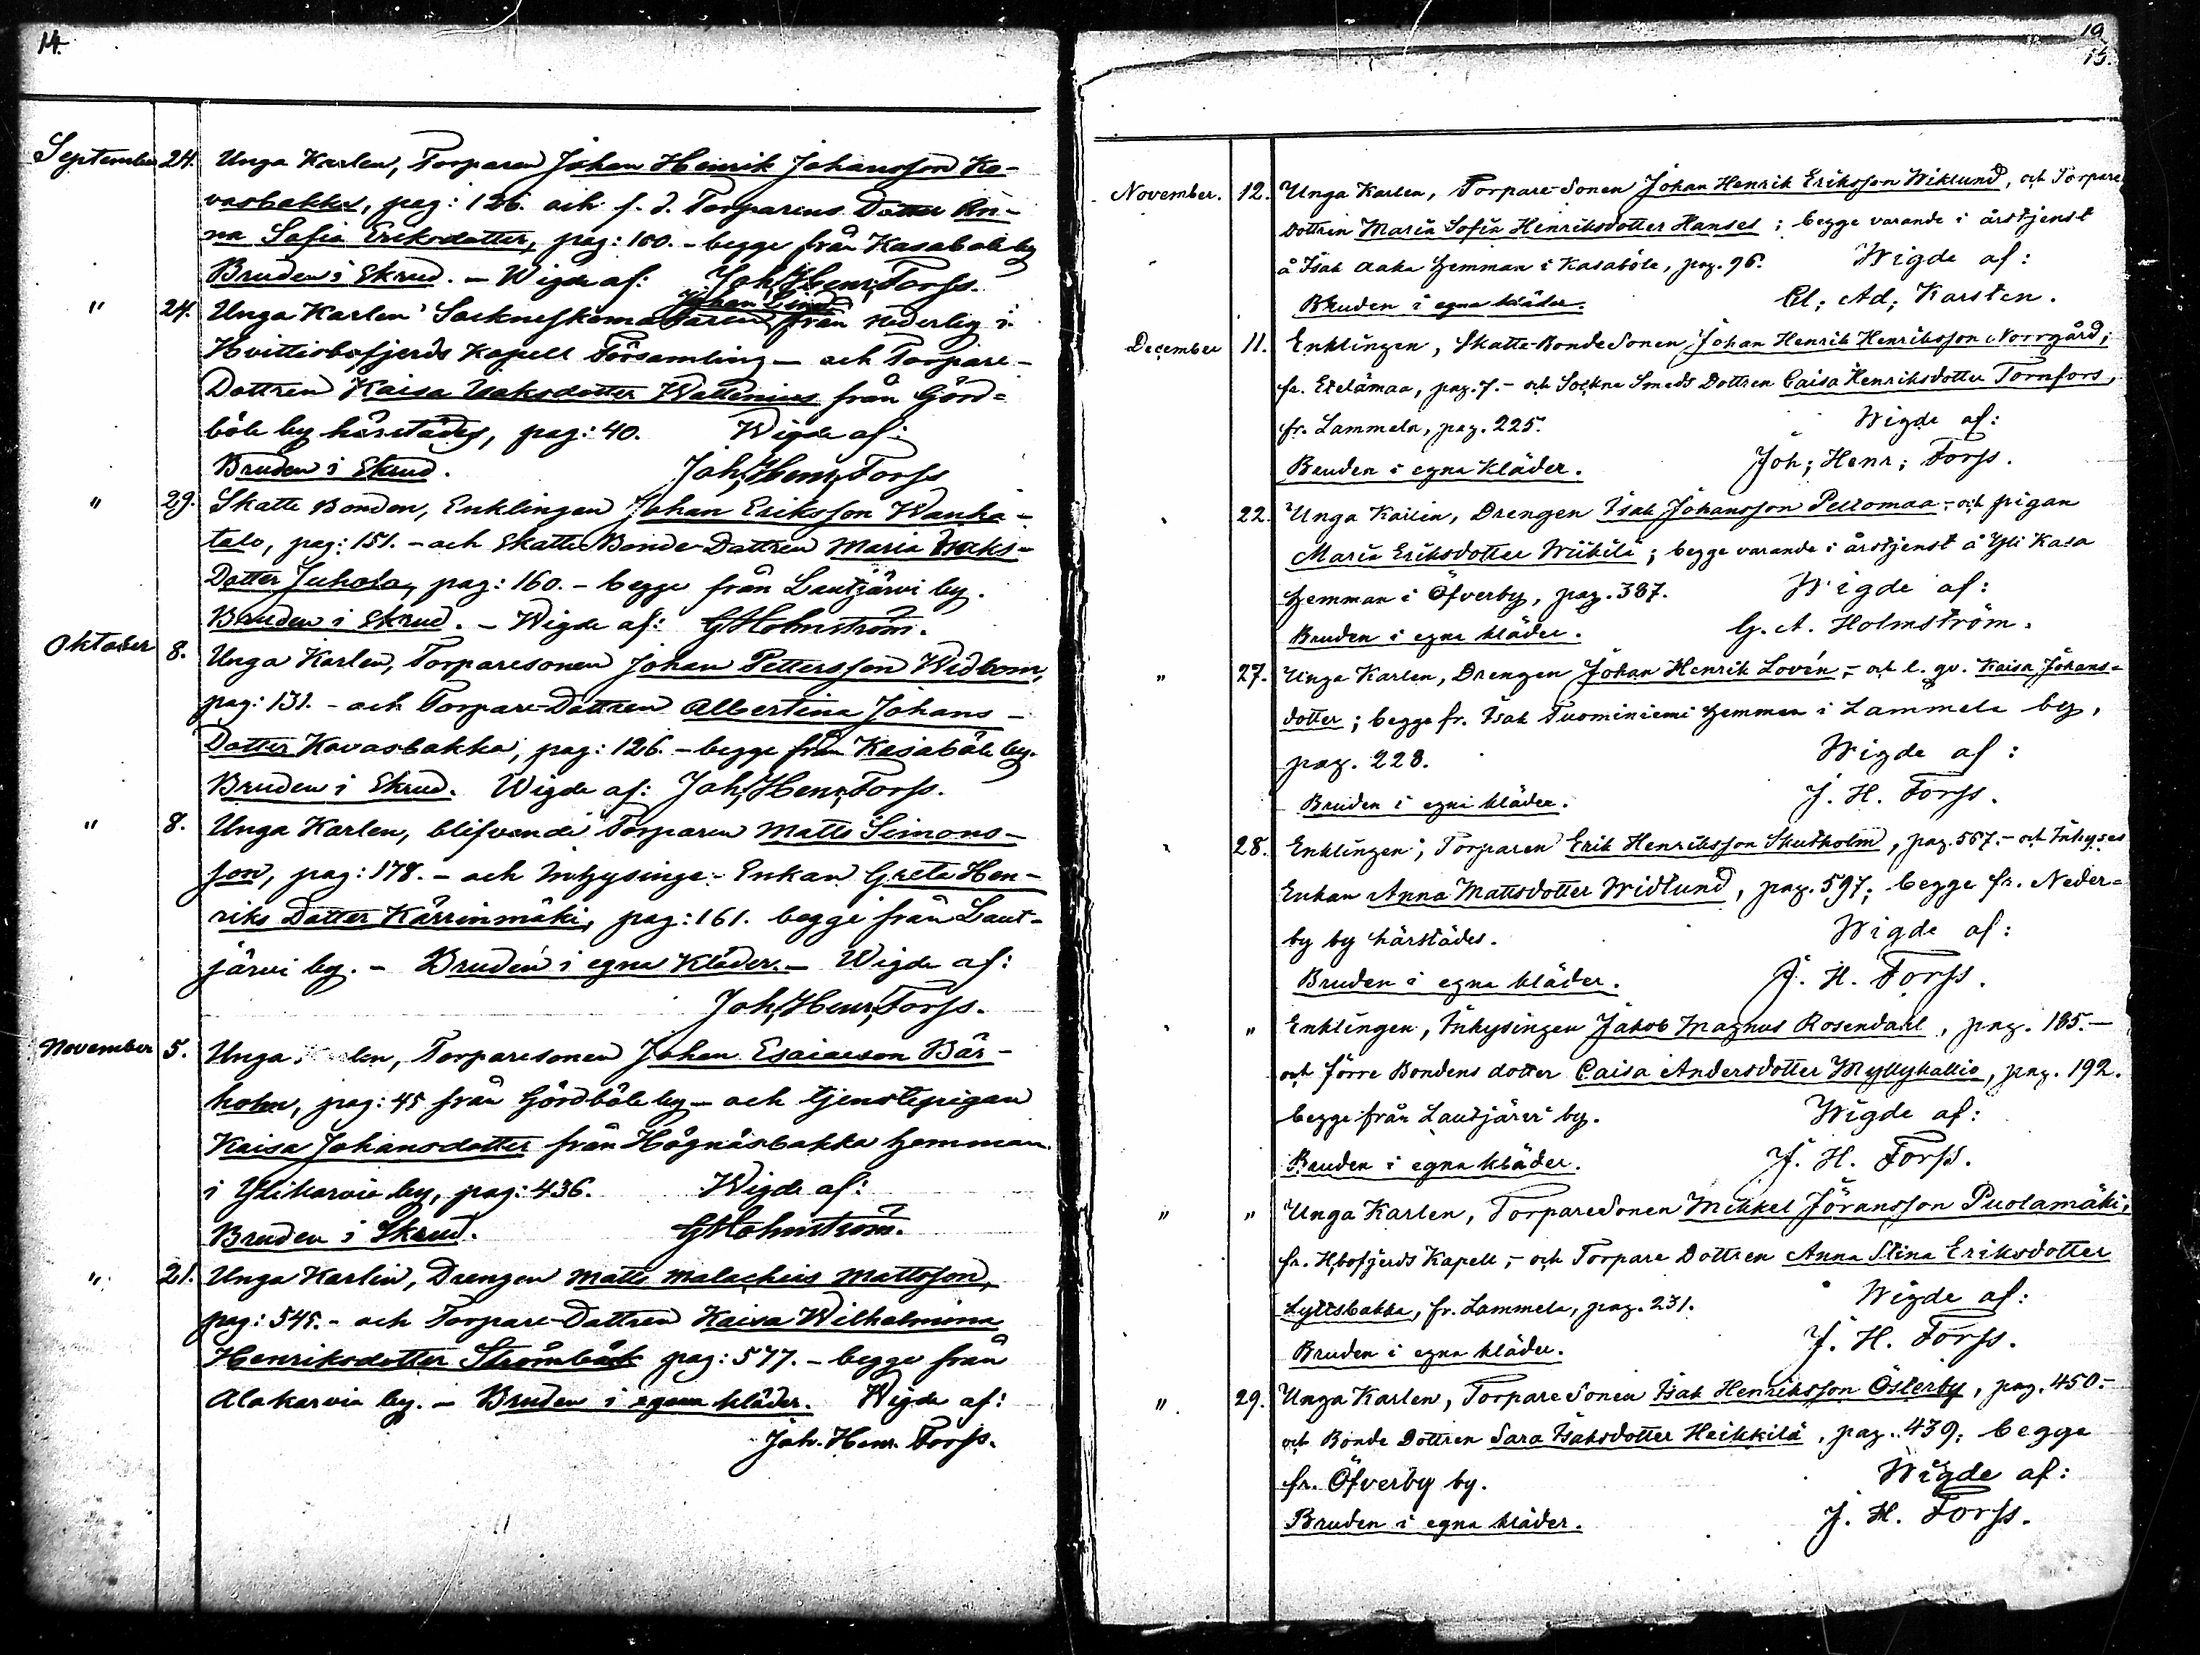 14.
September 24. Unga Karlen, Torparen Johan Henrik Johansson Ko-
vasbakka, pag: 126. och f. d. Torparens Dotter An-
na Sofia Eriksdotter, pag: 100. - begge från Kasaböle by
Bruden i Skrud. - Wigde af: Joh; Henr; Forss.
" 24. Unga Karlen Sockneskomakaren Johan Lind från Nederby i
Hvittisbofjerds Kapell Församling - och Torpare-
Dottren Kaisa Isaksdotter Wallenius från Görd-
böle by härstädes, pag: 40. Wigde af:
Bruden i Skrud. Joh; Henr; Forss
" 29. Skatte Bonden, Enklingen Johan Eriksson Wanha-
talo, pag: 151. - och Skatte Bonde-Dottren Maria Isaks-
Dotter Juhola, pag: 160. - begge från Lautjärvi by.
Bruden i Skrud. - Wigde af: GAHolmström.
Oktober 8. Unga Karlen, Torparesonen Johan Pettersson Widbom,
pag: 131. - och Torpare-Dottren Albertina Johans-
Dotter Kovasbakka, pag: 126. - begge från Kasaböle by.
Bruden i Skrud. Wigde af: Joh; Henr; Forss.
" 8. Unga Karlen, blifvande Torparen Matts Simons-
son, pag: 178. - och Inhysinge-Enkan Greta Hen-
riks Dotter Kärrinmäki, pag: 161. begge från Laut-
järvi by. - Bruden i egna Kläder. - Wigde af:
Joh; Henr; Forss.
November 5. Unga Karlen, Torparesonen Johan Esaiasson Bär-
holm, pag: 45 från Gördböle by - och tjenstepigan
Kaisa Johansdotter från Högnäsbakka hemman
i Ylikarvia by, pag: 436. Wigde af:
Bruden i Skrud. GAHolmström.
" 21. Unga Karlen, Drengen Matts Malachias Mattsson,
pag: 545. - och Torpare-Dottren Kaisa Wilhelmina
Henriksdotter Strömbäck pag: 577. - begge från
Alakarvia by. - Bruden i egna kläder. Wigde af:
Joh. Henr. Forss.
19
15.
November. 12. Unga Karlen, Torpare-Sonen Johan Henrik Eriksson Wiklund, och Torpare
Dottren Maria Sofia Henriksdotter Hanses; begge varande i årstjenst
å Isak Aaka hemman i Kasaböle, pag. 96. Wigde af:
Bruden i egna kläder. Cl; Ad; Karsten.
December 11. Enklingen, Skatte-BondeSonen Johan Henrik Henriksson Norrgård;
fr. Etelämaa, pag. 7. - och Sockne Smeds Dottren Caisa Henriksdotter Tornfors,
fr. Lammela, pag. 225. Wigde af:
Bruden i egna Kläder. Joh; Henr; Forss.
22. Unga Karlen, Drengen Isak Johansson Peltomaa - och pigan
Maria Eriksdotter Wiikilä; begge varande i årstjenst å Yli Kasa
hemman i Öfverby, pag. 387. Wigde af:
Bruden i egna kläder. G. A. Holmström.
" 27. Unga Karlen, Drengen Johan Henrik Lovén, - och l. qv. Kaisa Johans-
dotter; begge fr. Isak Tuominiemi hemman i Lammela by,
pag. 228. Wigde af:
Bruden i egna kläder. J. H. Forss.
28. Enklingen; Torparen Erik Henriksson Skutholm, pag. 567. - och Inhyses
Enkan Anna Mattsdotter Widlund, pag. 597; begge fr. Neder-
by by härstädes. Wigde af:
Bruden i egna kläder. J. H. Forss.
" Enklingen, Inhysingen Jakob Magnus Rosendahl, pag. 185. -
och förre Bondens dotter Caisa Andersdotter Myllykallio, pag. 192.
begge från Lautjärvi by. Wigde af:
Bruden i egna kläder. J. H. Forss.
" " Unga Karlen, TorpareSonen Mikkel Jöransson Puolamäki,
fr. H;bofjerds Kapell; - och Torpare Dottren Anna Stina Eriksdotter
Lyttsbakka, fr. Lammela, pag. 231. Wigde af:
Bruden i egna kläder. J. H. Forss.
" 29. Unga Karlen, TorpareSonen Isak Henriksson Österby, pag. 450. -
och Bonde Dottren Sara Isaksdotter Heikkilä, pag. 439; begge
fr. Öfverby by. Wigde af:
Bruden i egna kläder. J. H. Forss.